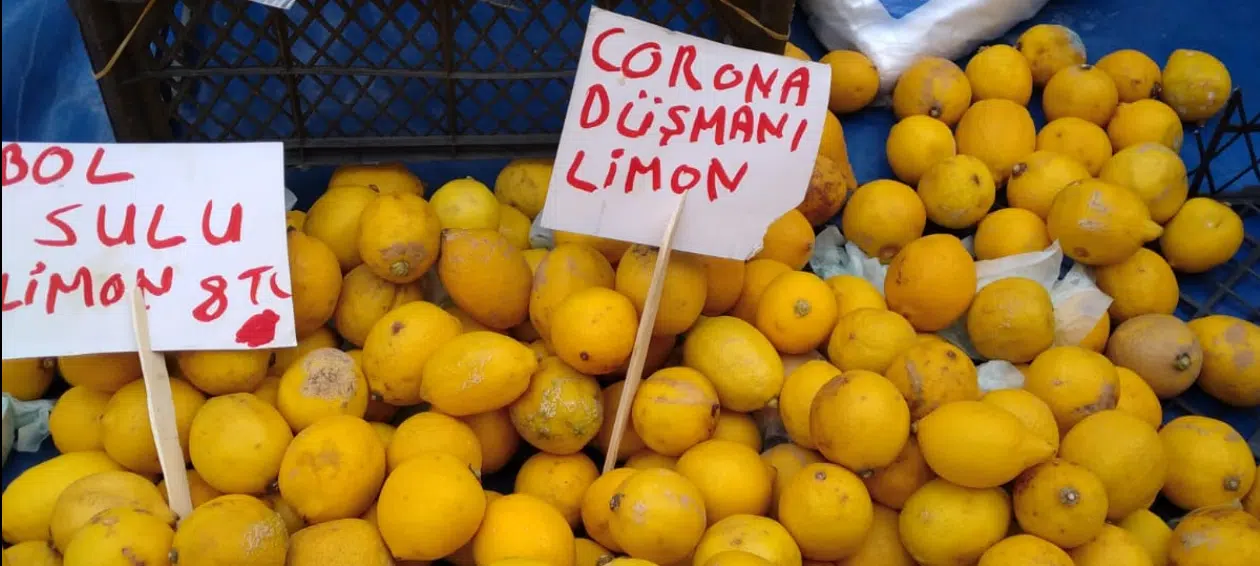 BOL
SULU
LİMON 8 TL
CORONA
DÜŞMANI
LİMON